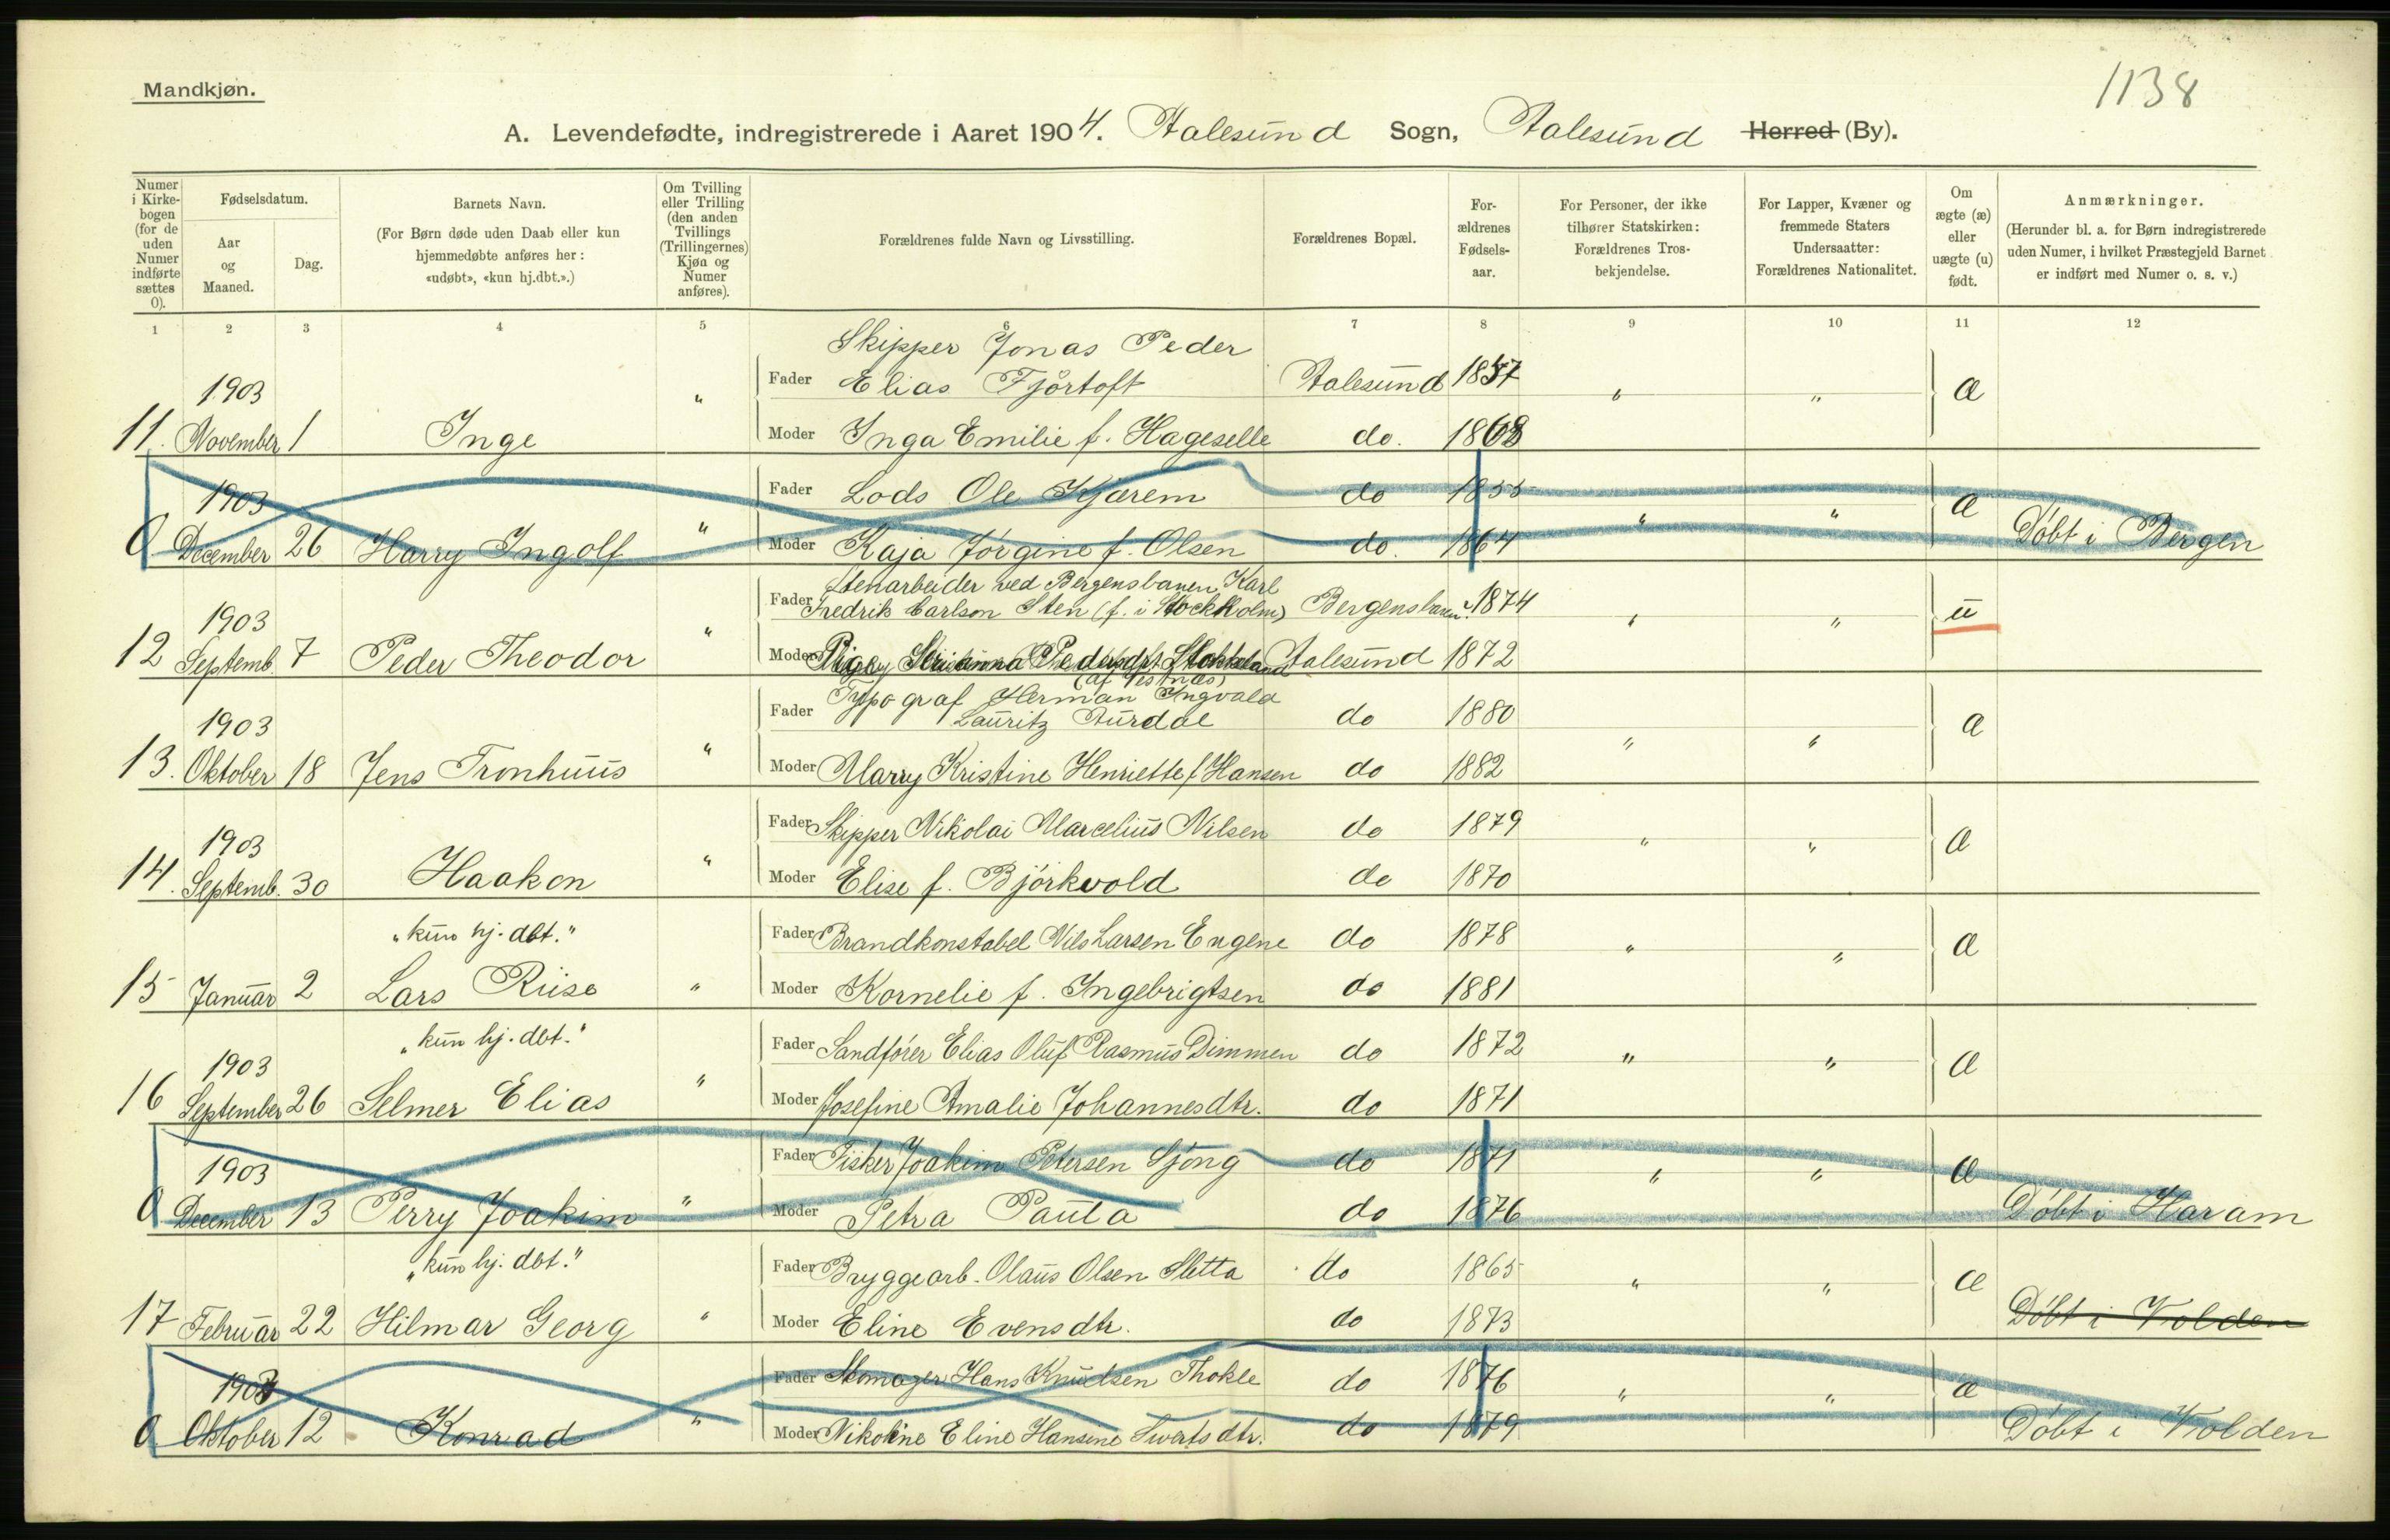 Mandkjøn.
1138
A. Levendefødte, indregistrerede i Aaret 1904. Aalesund Sogn, Aalesund Herred (By).
Numer i Kirkebogen (for de uden Numer indførte sættes 0).
Fødselsdatum.
Aar og Maaned.
Dag.
Barnets Navn.
(For Børn døde uden Daab eller kun hjemmedøbte anføres her: «udøbt», «kun hj.dbt.».)
Om Tvilling eller Trilling (den anden Tvillings (Trillingernes) Kjøn og Numer anføres).
Forældrenes fulde Navn og Livsstilling.
Forældrenes Bopæl.
For-ældrenes Fødsels-aar.
For Personer, der ikke tilhører Statskirken: Forældrenes Tros-bekjendelse.
For Lapper, Kvæner og fremmede Staters Undersaatter: Forældrenes Nationalitet.
Om ægte (æ) eller uægte (u) født.
Anmærkninger.
(Herunder bl. a. for Børn indregistrerede uden Numer, i hvilket Præstegjeld Barnet er indført med Numer o. s. v.)
1 2 3 4 5 6 7 8 9 10 11 12
Skipper Jonas Peder
1903 Fader Elias Fjörtoft Aalesund 1857 " " æ
11. November 1 Inge " Moder Inga Emilie f. Hageselle do. 1868
1903 Fader Lods Ole Kjærem do 1855 " " æ
0 December 26 Harry Ingolf " Moder Kaja Jørgine f. Olsen do. 1864 Döbt i Bergen
Stenarbeider ved Bergensbanen Karl
1903 Fader Fredrik Carlson Sten (f. i Stockholm) Bergensbanen? 1874 " " u
12 Septemb. 7 Peder Theodor " Moder Pige Pedersdt. Aalesund 1872
(af Vestnæs)
Typograf Herman Ingvald
1903 Fader Lauritz Aurdal do 1880 " " æ
13. Oktober 18 Jens Tronhuus " Moder Marry Kristine Henriette f Hansen do 1882
1903 Fader Skipper Nikolai Marcelius Nilsen do 1879 " " æ
14. Septemb. 30 Haakon " Moder Elise f. Björkvold do 1870
"kun hj. dbt." Fader Brandkonstabel Nils Larsen Eugene do 1878 " " æ
15 Januar 2 Lars Riise " Moder Kornelie f. Ingebrigtsen do 1881
"kun hj. dbt." Fader Sandförer Elias Oluf Rasmus Dimmen do 1872 " " æ
1903
16 September 26 Selmer Elias " Moder Josefine Amalie Johannesdtr. do 1871
1903 Fader Fisker Joakim Petersen Sjöng do 1871 " " æ
0 December 13 Perry Joakim " Moder Petra Paula do 1876 Döbt i Haram
"kun hj. dbt." Fader Bryggearb. Olaus Olsen Sletta do 1865 " " æ
17 Februar 22 Hilmar Georg " Moder Eline Evensdtr. do 1873 Döbt i Volden
1903 Fader Skomager Hans Knudsen Thokle do 1876 " " æ
0 Oktober 12 Konrad " Moder Nikoline Eline Hansine Sivertsdtr. do 1879 Döbt i Volden